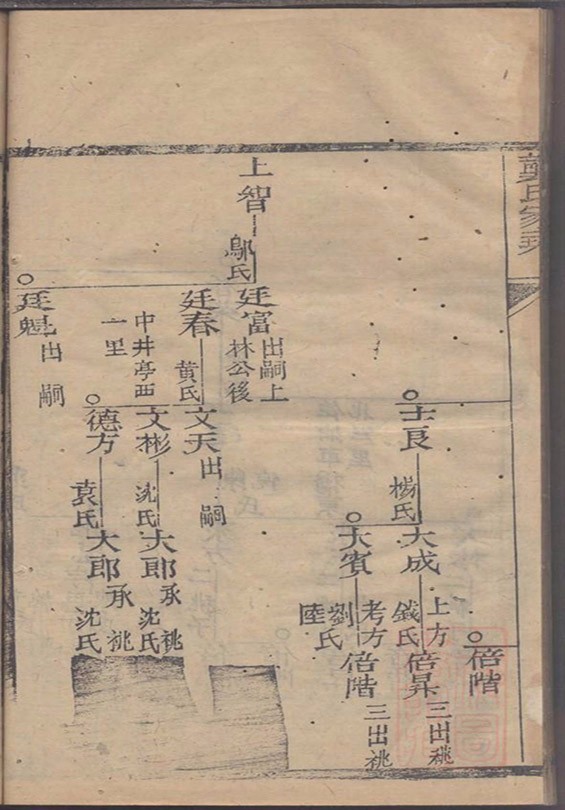 葉氏家乘
倍階
士良
楊氏
大成
上方
錢氏
倍昇
三出祧
大賓
考方
劉氏
陸
倍階
三出祧
上智
鄔氏
廷富
出嗣上
林公後
廷春
黃氏
文天
出嗣
中井亭西
一里
文彬
沈氏
大郎
承祧
沈氏
德方
袁氏
大郎
承祧
沈氏
廷魁
出嗣